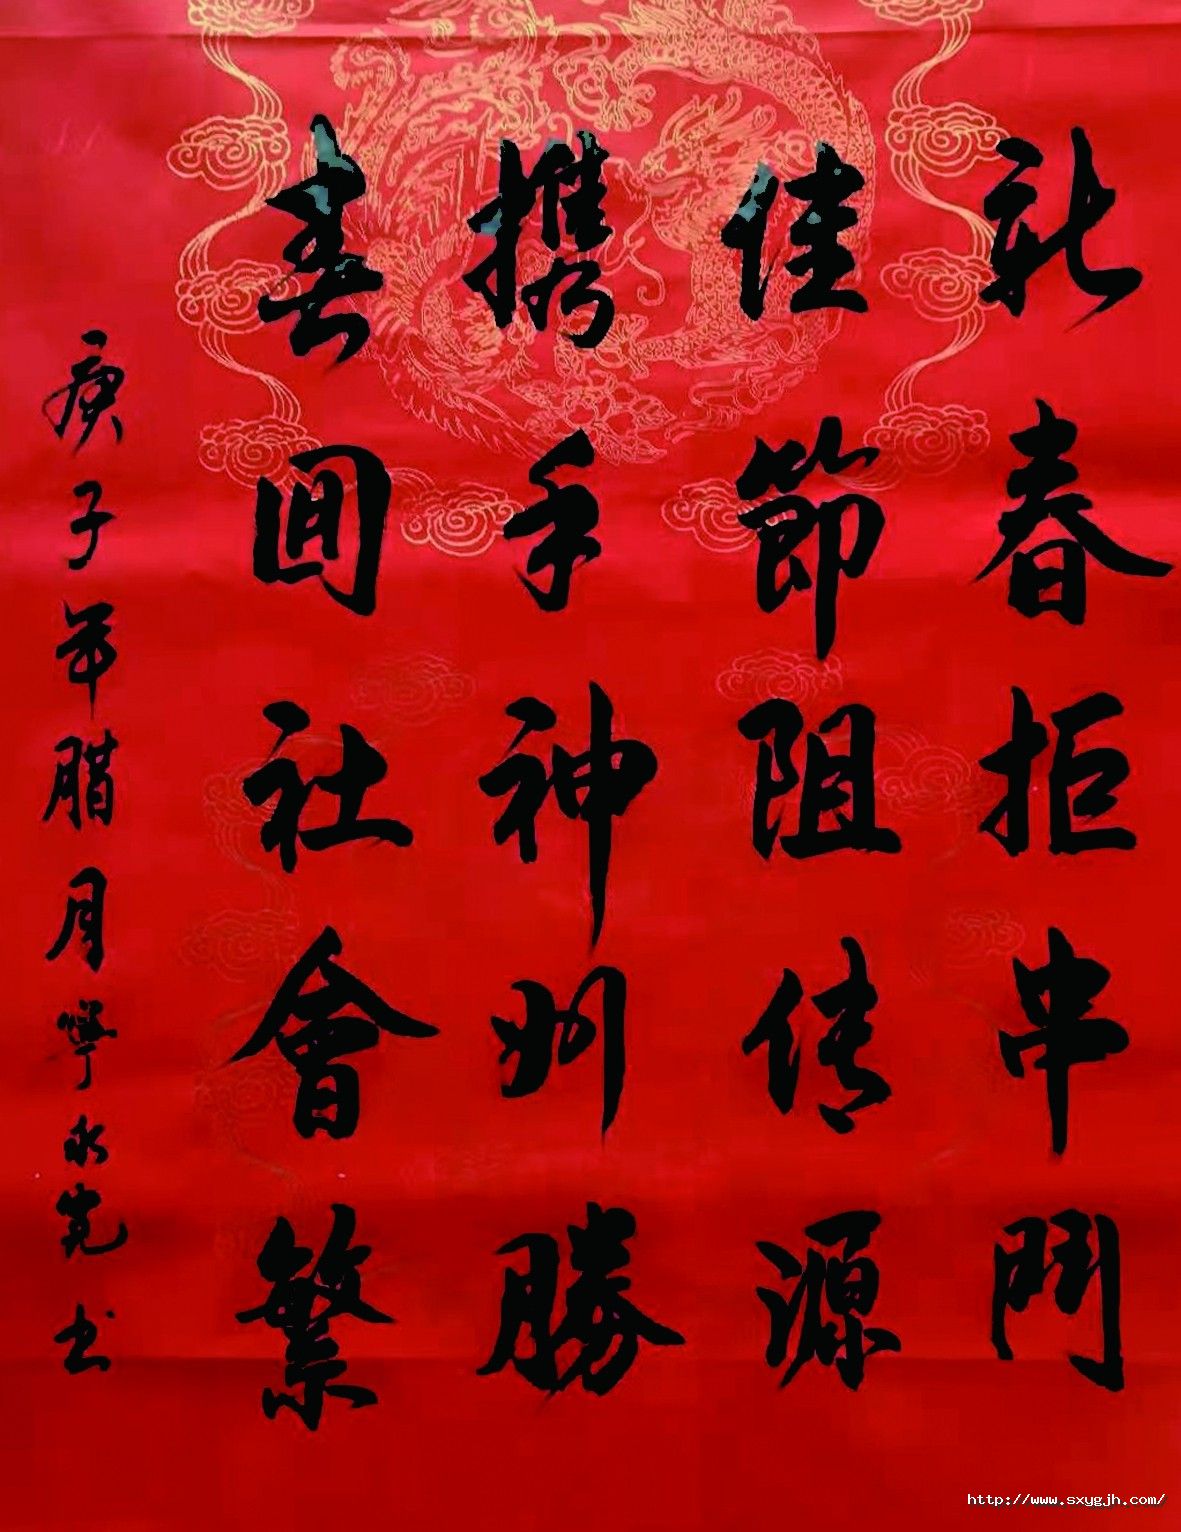 新春拒串門
佳節阻传源
携手神州勝
春回社會繁
庚子年腊月寧永亮书
http://www.sxygjh.com/